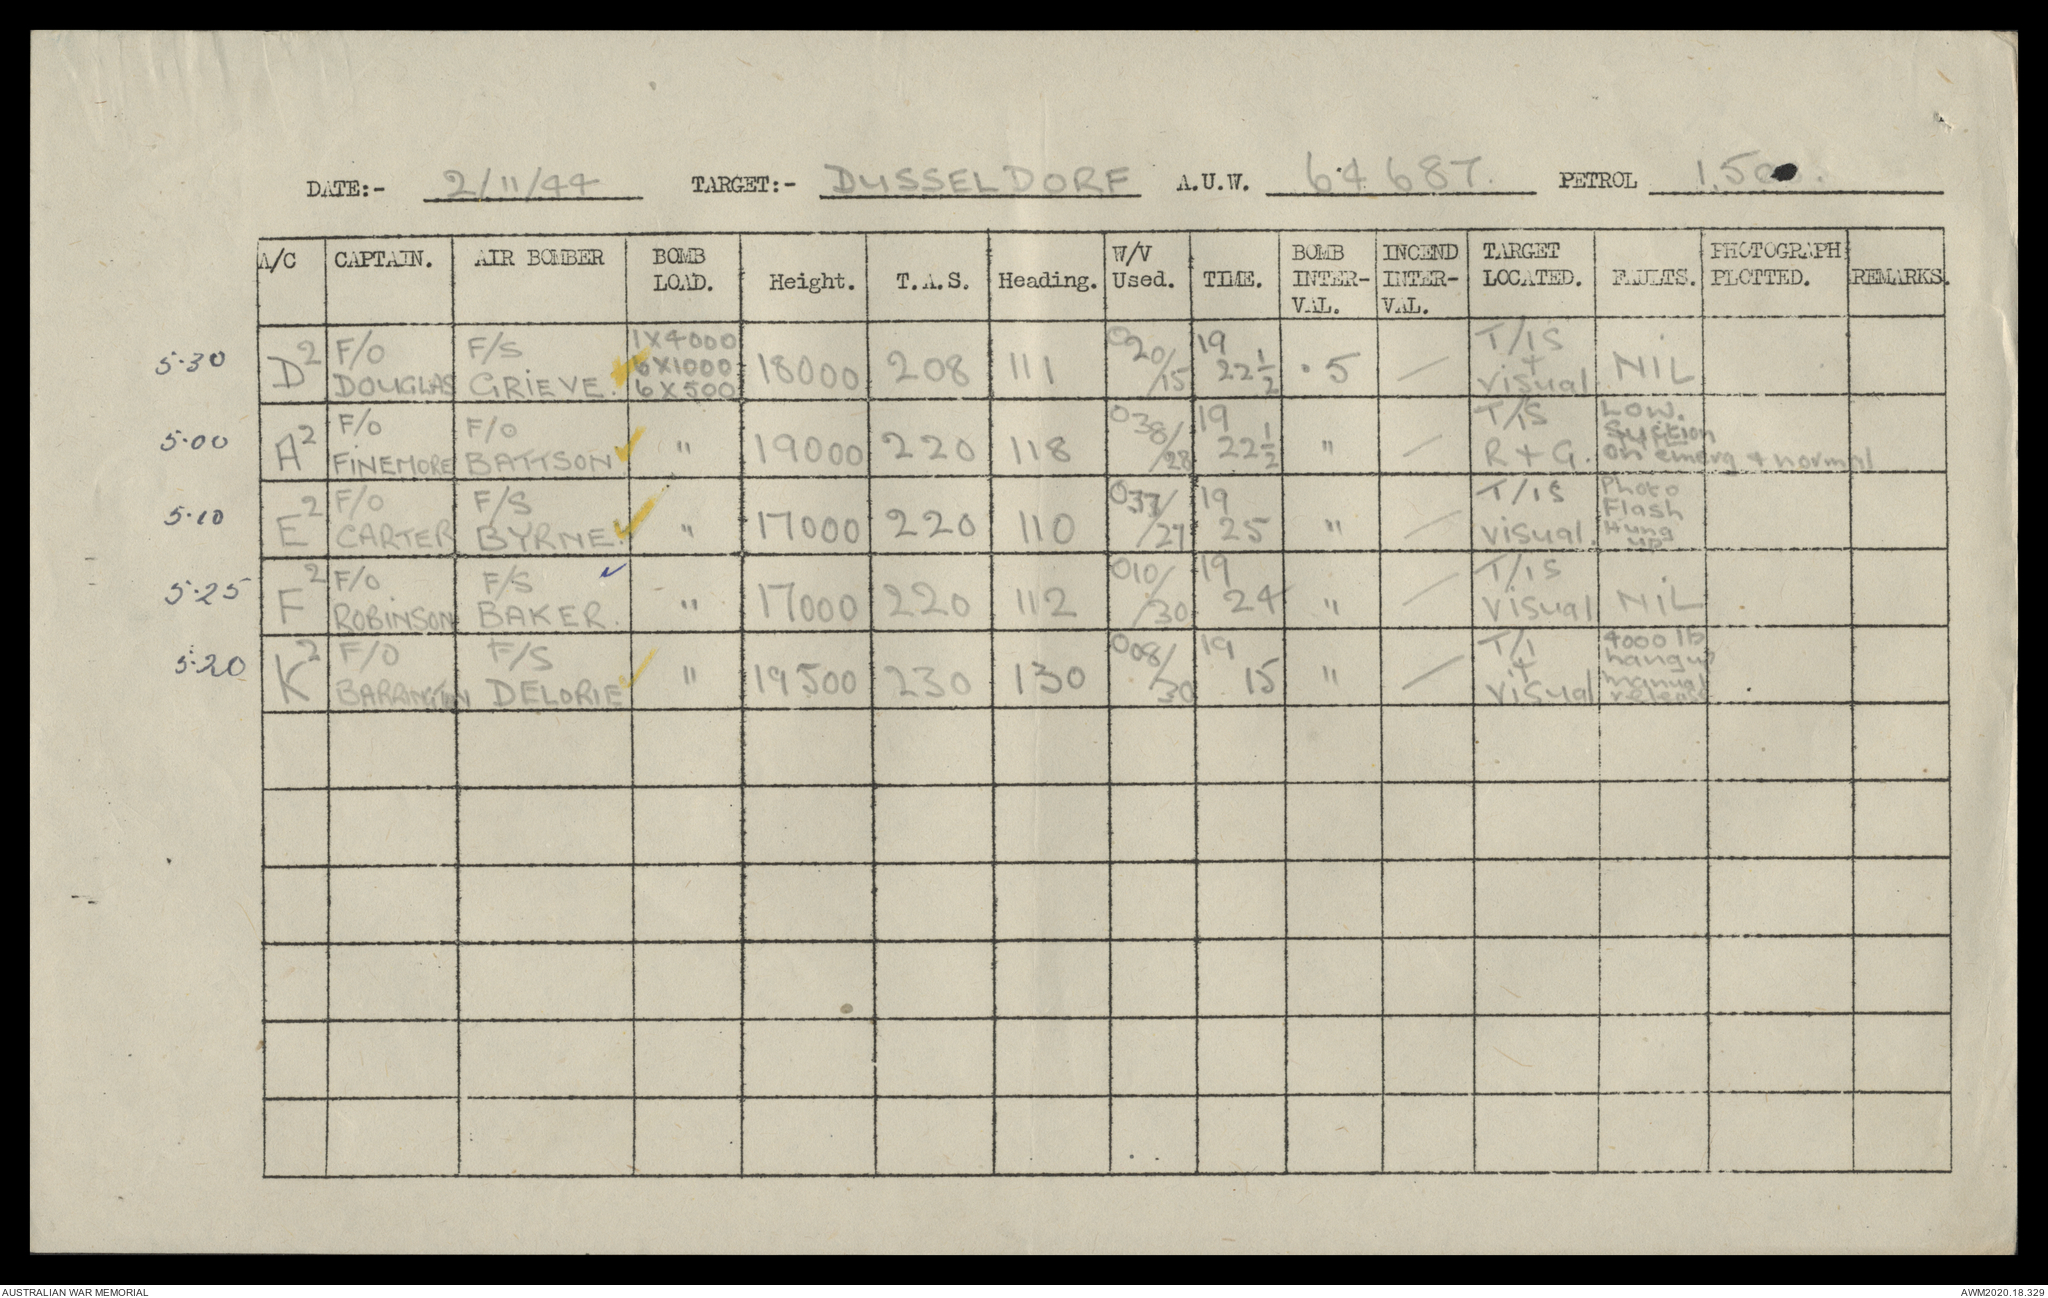 DATE:- 2/11/44 TARGET:- DUSSELDORF A.U.W. 64687. PETROL
A/C CAPTAIN. AIR BOMBER BOMB LOAD. Height. T.A.S. Heading. W/V Used. TIME. BOMB INTER-VAL. INCEND INTER-VAL. TARGET LOCATED. FAULTS. PHOTOGRAPH PLOTTED. REMARKS.
5·30 D2 F/O DOUGLAS F/S GRIEVE. 1X4000 6X1000 6X500 18000 208 111 020/15 19 22½ ·5 / T/IS + visual NIL
5·00 A2 F/O FINEMORE F/O BATTSON " 19000 220 118 038/28 19 22½ " / T/IS R+G. Low. Suction on emerg + normal
5·10 E2 F/O CARTER F/S BYRNE. " 17000 220 110 037/27 19 25 " / T/IS visual. Photo Flash Hung up
5·25 F2 F/O ROBINSON F/S BAKER. " 17000 220 112 010/30 19 24 " / T/IS visual NIL
5·20 K2 F/O BARRINGTON F/S DELORIE " 19500 230 130 008/30 19 15 " / T/I + visual 4000 lb hangup manual release
AUSTRALIAN WAR MEMORIAL
AWM2020.18.329